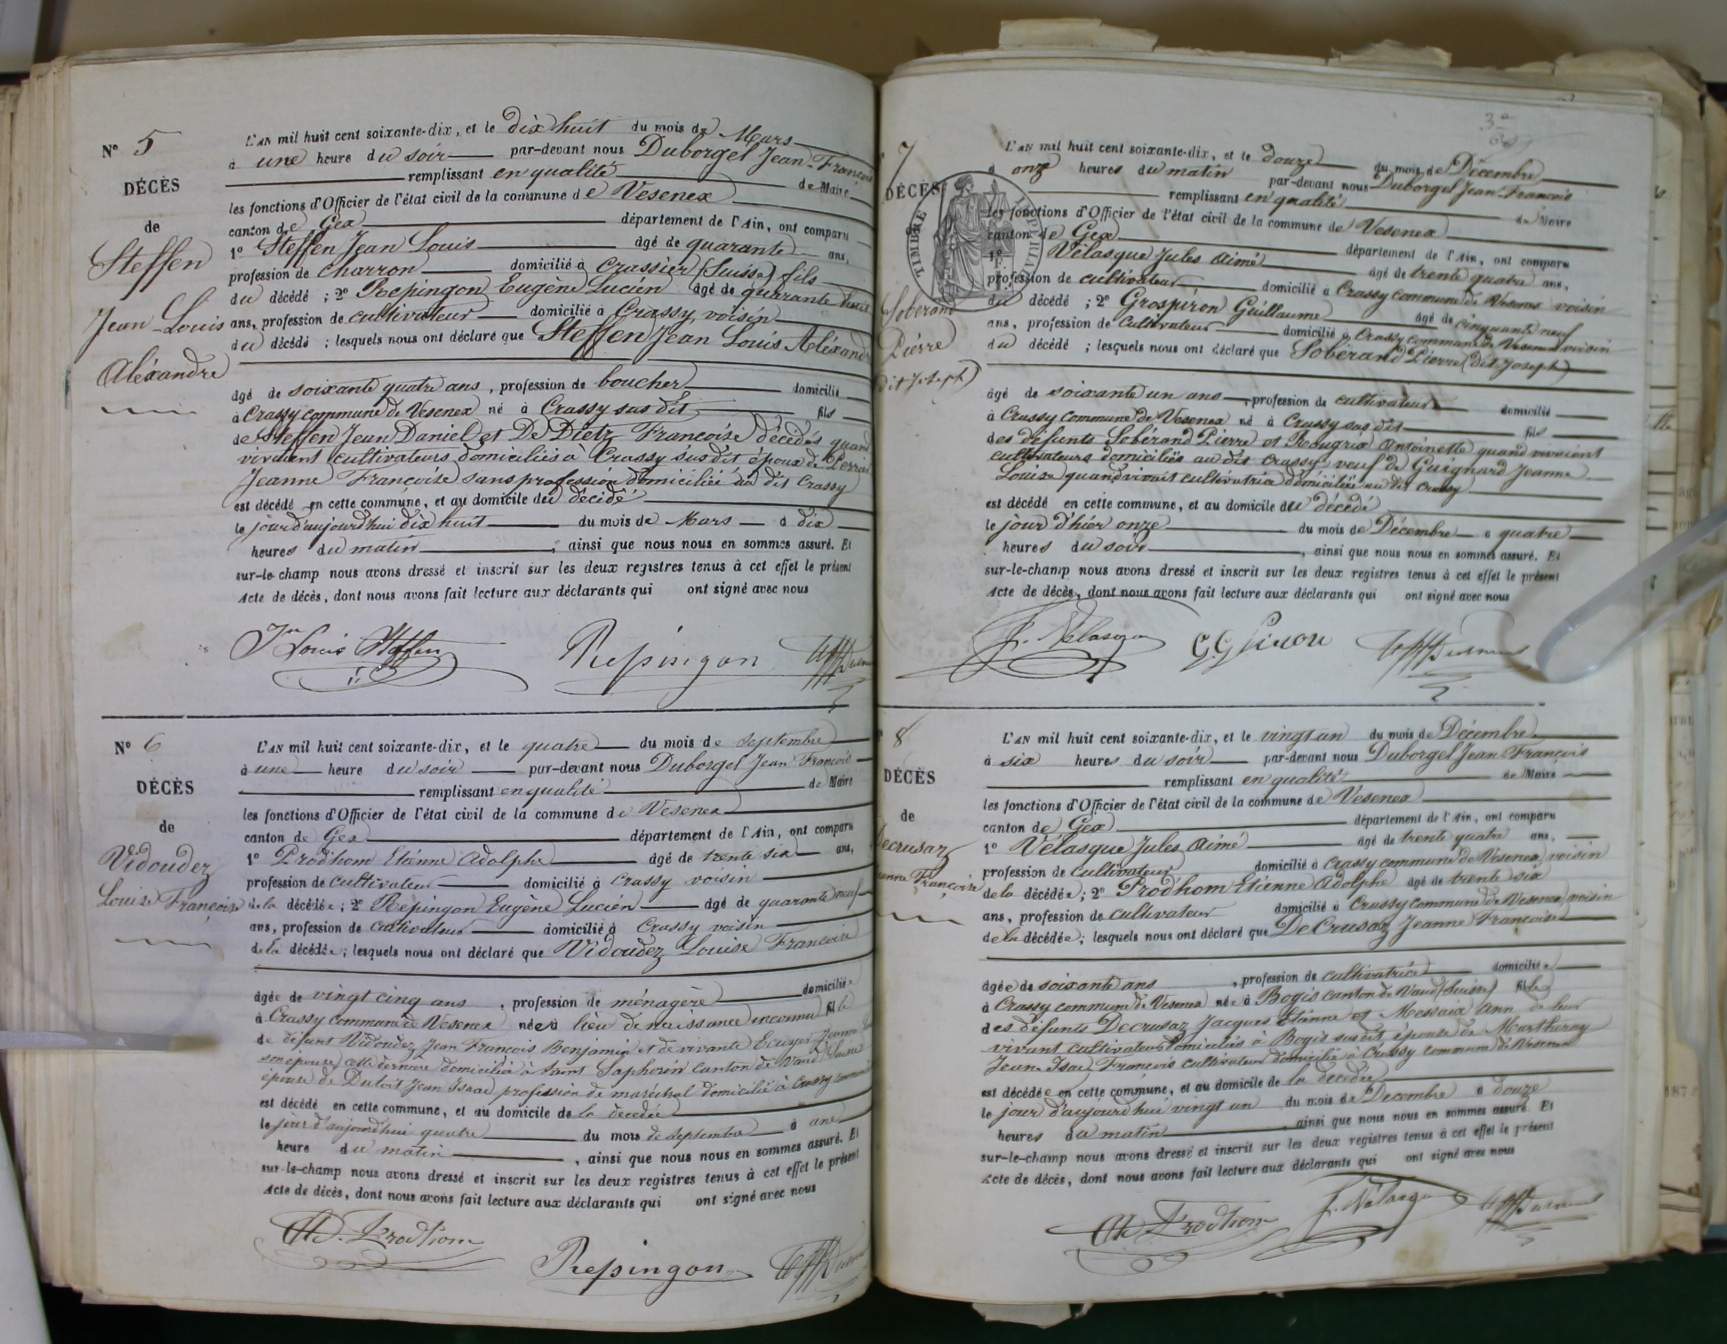 N° 5
DÉCÈS
de
Steffen
Jean Louis
Aléxandre
L'AN mil huit cent soixante-dix, et le dix huit du mois de Mars
à une heure du soir par-devant nous Duborgel Jean-François
remplissant en qualité de Maire
les fonctions d'Officier de l'état civil de la commune de Vesenex
canton de Gex département de l'Ain, ont comparu
1° Steffen Jean Louis âgé de quarante ans,
profession de charron domicilié à Crassier (Suisse) fils
du décédé ; 2° Repingon Eugène Lucien âgé de quarante huit
ans, profession de cultivateur domicilié à Crassy, voisin
du décédé ; lesquels nous ont déclaré que Steffen Jean Louis Aléxandre
âgé de soixante quatre ans, profession de boucher domicilié
à Crassy commune de Vesenex né à Crassy sus dit fils
de Steffen Jean Daniel et De Dietz Françoise décédés quand
vivaient cultivateurs domiciliés à Crassy sus dit époux de
Jeanne Françoise sans profession domiciliée au dit Crassy
est décédé en cette commune, et au domicile du décédé
le jour d'aujourd'hui dix huit du mois de Mars à dix
heures du matin ; ainsi que nous nous en sommes assuré. Et
sur-le-champ nous avons dressé et inscrit sur les deux registres tenus à cet effet le présent
Acte de décès, dont nous avons fait lecture aux déclarants qui ont signé avec nous
Jn Louis Steffen Repingon
N° 6
DÉCÈS
de
Vidoudez
Louise Françoise
L'AN mil huit cent soixante-dix, et le quatre du mois de Septembre
à une heure du soir par-devant nous Duborgel Jean François
remplissant en qualité de Maire
les fonctions d'Officier de l'état civil de la commune de Vesenex
canton de Gex département de l'Ain, ont comparu
1° Prodhom Etienne Adolphe âgé de trente six ans,
profession de cultivateur domicilié à Crassy voisin
de la décédée ; 2° Repingon Eugène Lucien âgé de quarante neuf
ans, profession de cultivateur domicilié à Crassy voisin
de la décédée ; lesquels nous ont déclaré que Vidoudez Louise Françoise
âgée de vingt cinq ans, profession de ménagère domiciliée
à Crassy commune de Vesenex née à lieu de naissance inconnu fille
de défunt Vidoudez Jean François Benjamin et de vivante Ecuyer Jeanne
son épouse cette dernière domiciliée à Saint Saphorin canton de Vaud Suisse
épouse de Dutoit Jean Isaac profession de maréchal domicilié à Crassy
est décédé en cette commune, et au domicile de la décédée
le jour d'aujourd'hui quatre du mois de Septembre à une
heure du matin, ainsi que nous nous en sommes assuré. Et
sur-le-champ nous avons dressé et inscrit sur les deux registres tenus à cet effet le présent
Acte de décès, dont nous avons fait lecture aux déclarants qui ont signé avec nous
Ad. Prodhom
Repingon
7
DÉCÈS
TIMBRE
Soberand
Pierre
dit Joseph)
L'AN mil huit cent soixante-dix, et le douze du mois de Décembre
à onze heures du matin par-devant nous Duborgel Jean-François
remplissant en qualité de Maire
les fonctions d'Officier de l'état civil de la commune de Vesenex
canton de Gex département de l'Ain, ont comparu
1° Vélasque Jules Aimé âgé de trente quatre ans,
profession de cultivateur domicilié à Crassy commune de Vesenex voisin
du décédé ; 2° Grospiron Guillaume âgé de cinquante neuf
ans, profession de Cultivateur domicilié à Crassy commune de Vesenex voisin
du décédé ; lesquels nous ont déclaré que Soberand Pierre (dit Joseph)
âgé de soixante un ans, profession de cultivateur domicilié
à Crassy commune de Vesenex né à Crassy sus dit fils
des défunts Soberand Pierre et Antoinette quand vivaient
cultivateurs domiciliés au dit Crassy veuf de Guignard Jeanne
Louise quand vivait cultivatrice domiciliée au dit Crassy
est décédé en cette commune, et au domicile du décédé
le jour d'hier onze du mois de Décembre à quatre
heures du soir, ainsi que nous nous en sommes assuré. Et
sur-le-champ nous avons dressé et inscrit sur les deux registres tenus à cet effet le présent
Acte de décès, dont nous avons fait lecture aux déclarants qui ont signé avec nous
J. Vélasque
8
DÉCÈS
de
Decrusaz
Jeanne Françoise
L'AN mil huit cent soixante-dix, et le vingt un du mois de Décembre
à six heures du soir par-devant nous Duborgel Jean François
remplissant en qualité de Maire
les fonctions d'Officier de l'état civil de la commune de Vesenex
canton de Gex département de l'Ain, ont comparu
1° Vélasque Jules Aimé âgé de trente quatre ans,
profession de cultivateur domicilié à Crassy commune de Vesenex voisin
de la décédée ; 2° Prod'hom Etienne Adolphe âgé de trente six
ans, profession de cultivateur domicilié à Crassy commune de Vesenex voisin
de la décédée ; lesquels nous ont déclaré que De Crusaz Jeanne Françoise
âgée de soixante ans, profession de cultivatrice domiciliée
à Crassy commune de Vesenex née à Bogis canton de Vaud (Suisse) fille
des défunts Decrusaz Jacques Etienne et Messaix Ann de leur
vivant cultivateurs domiciliés à Bogis sus dit, épouse de Martheray
Jean Isac François cultivateur domicilié à Crassy commune de Vesenex
est décédée en cette commune, et au domicile de la décédée
le jour d'aujourd'hui vingt un du mois de Décembre à douze
heures du matin, ainsi que nous nous en sommes assuré. Et
sur-le-champ nous avons dressé et inscrit sur les deux registres tenus à cet effet le présent
Acte de décès, dont nous avons fait lecture aux déclarants qui ont signé avec nous
Ad. Prodhom J. Vélasque